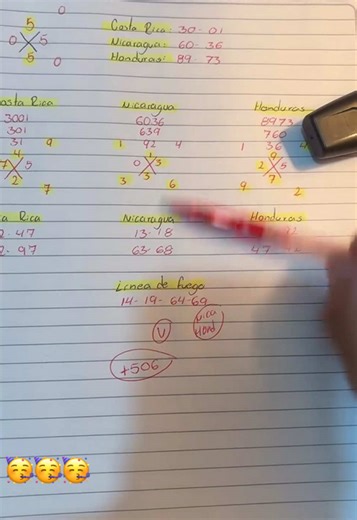 0
5
0 5
5
0
Costa Rica: 30-01
Nicaragua: 60-36
Honduras: 89-73
osta Rica Nicaragua Honduras
3001 6036 8973
301 639 760
31 9 1 92 4 1 36 4
4 1 9
7 5 0 3 2 5
2 3 7
7 3 6 9 2
a Rica Nicaragua Honduras
2-47 13-18
2-97 63-68 47
Linea de fuego
14-19-64-69
V nica
Hond
+506